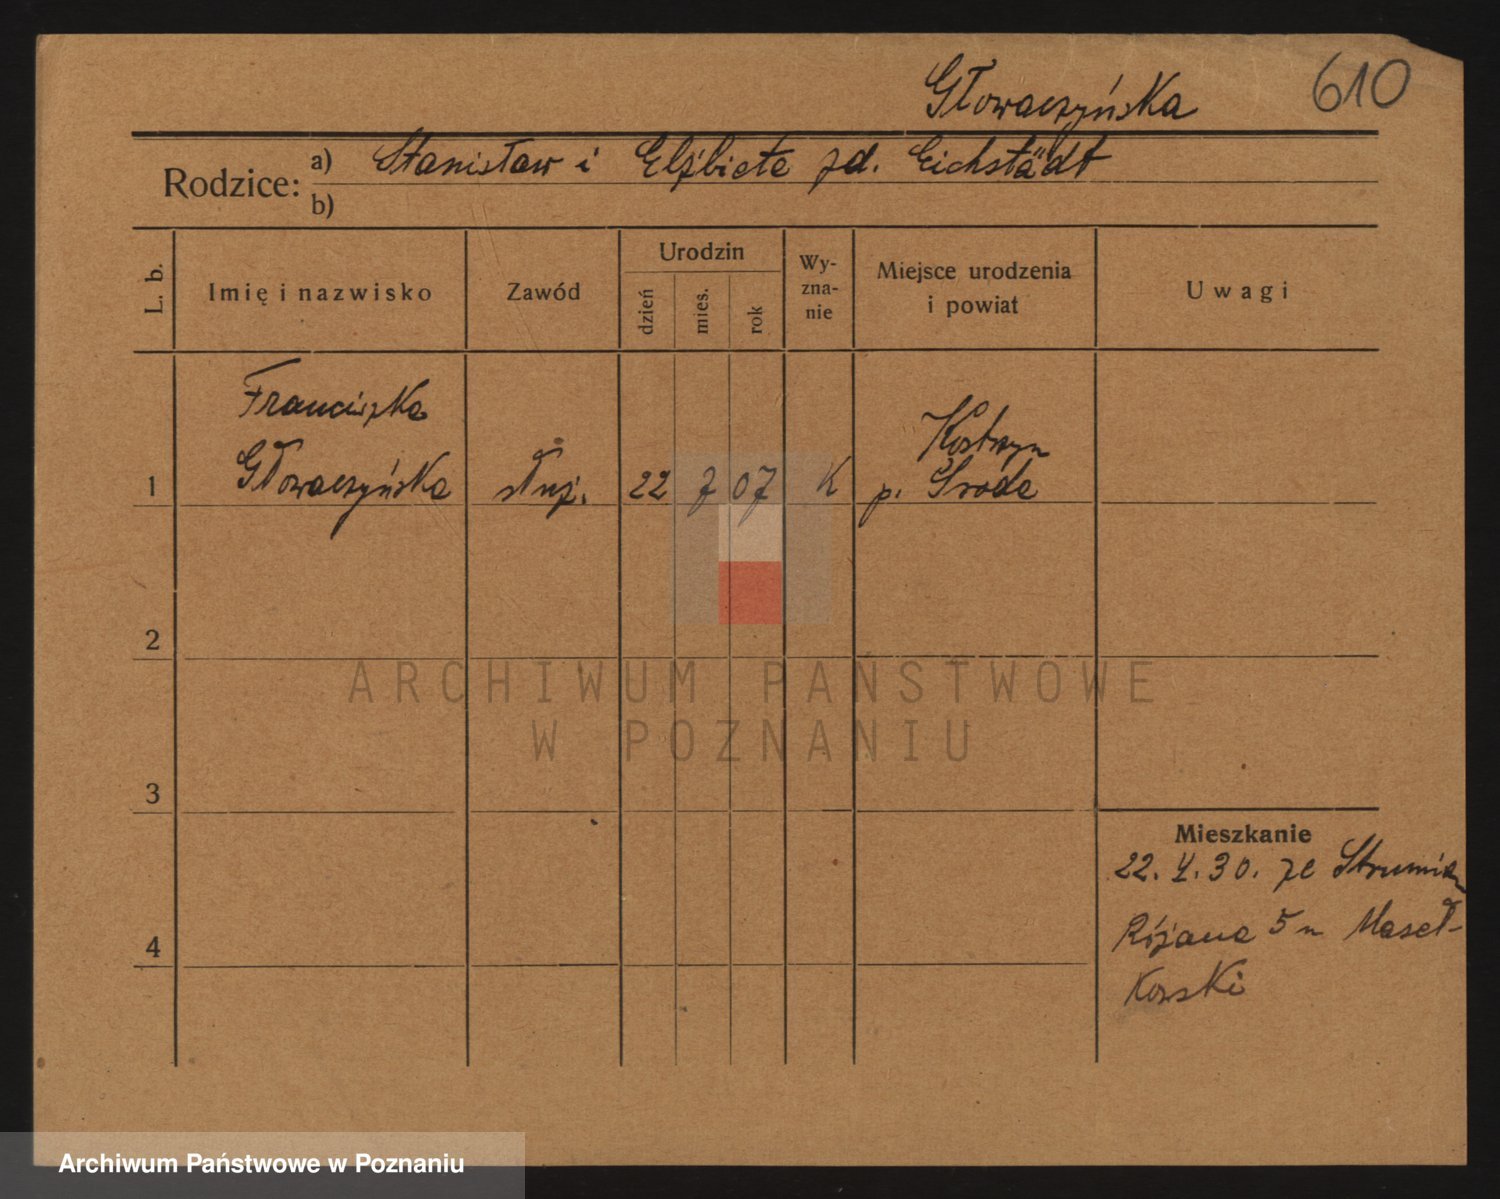 Głowaczyńska
610
Rodzice: a) Stanisław i Elżbieta zd. Eichstädt
b)
L. b.
Imię i nazwisko
Zawód
Urodzin
dzień
mies.
rok
Wy-
zna-
nie
Miejsce urodzenia
i powiat
Uwagi
Franciszka
Głowaczyńska
1
służ.
22 7 07
K
Kostrzyn
p. Środa
2
ARCHIWUM PAŃSTWOWE
W POZNANIU
3
4
Mieszkanie
22. 30. ze
Różana 5 Maseł-
kowski
Archiwum Państwowe w Poznaniu